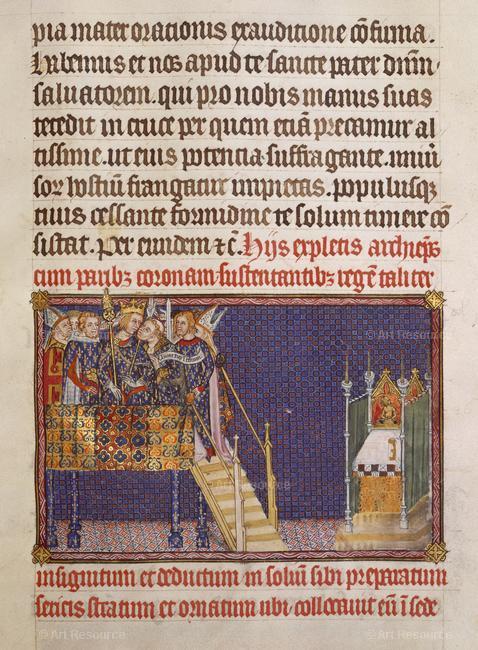 pia mater orationis exauditione cōfirma.
Habemus et nos apud te sancte pater dnm
saluatorem. qui pro nobis manus suas
tetēdit in cruce per quem etiā precamur al
tissime. ut eius potencia suffragante. inimi
sor hostiū frangatur impietas. populusq;
tuus cessante formidine te solum timere cō
sistat. Per eiusdem ⁊ c̄. Hiis expletis archiep̄s
cum paribȝ coronam sustentantibȝ regē taliter
insignitum et deductum in soliū sibi preparatum
sericis stratum et ornatum ubi collocauit eū ī sede
© Art Resource
© Art Resource
© Art Resource
© Art Resource
© Art Resource